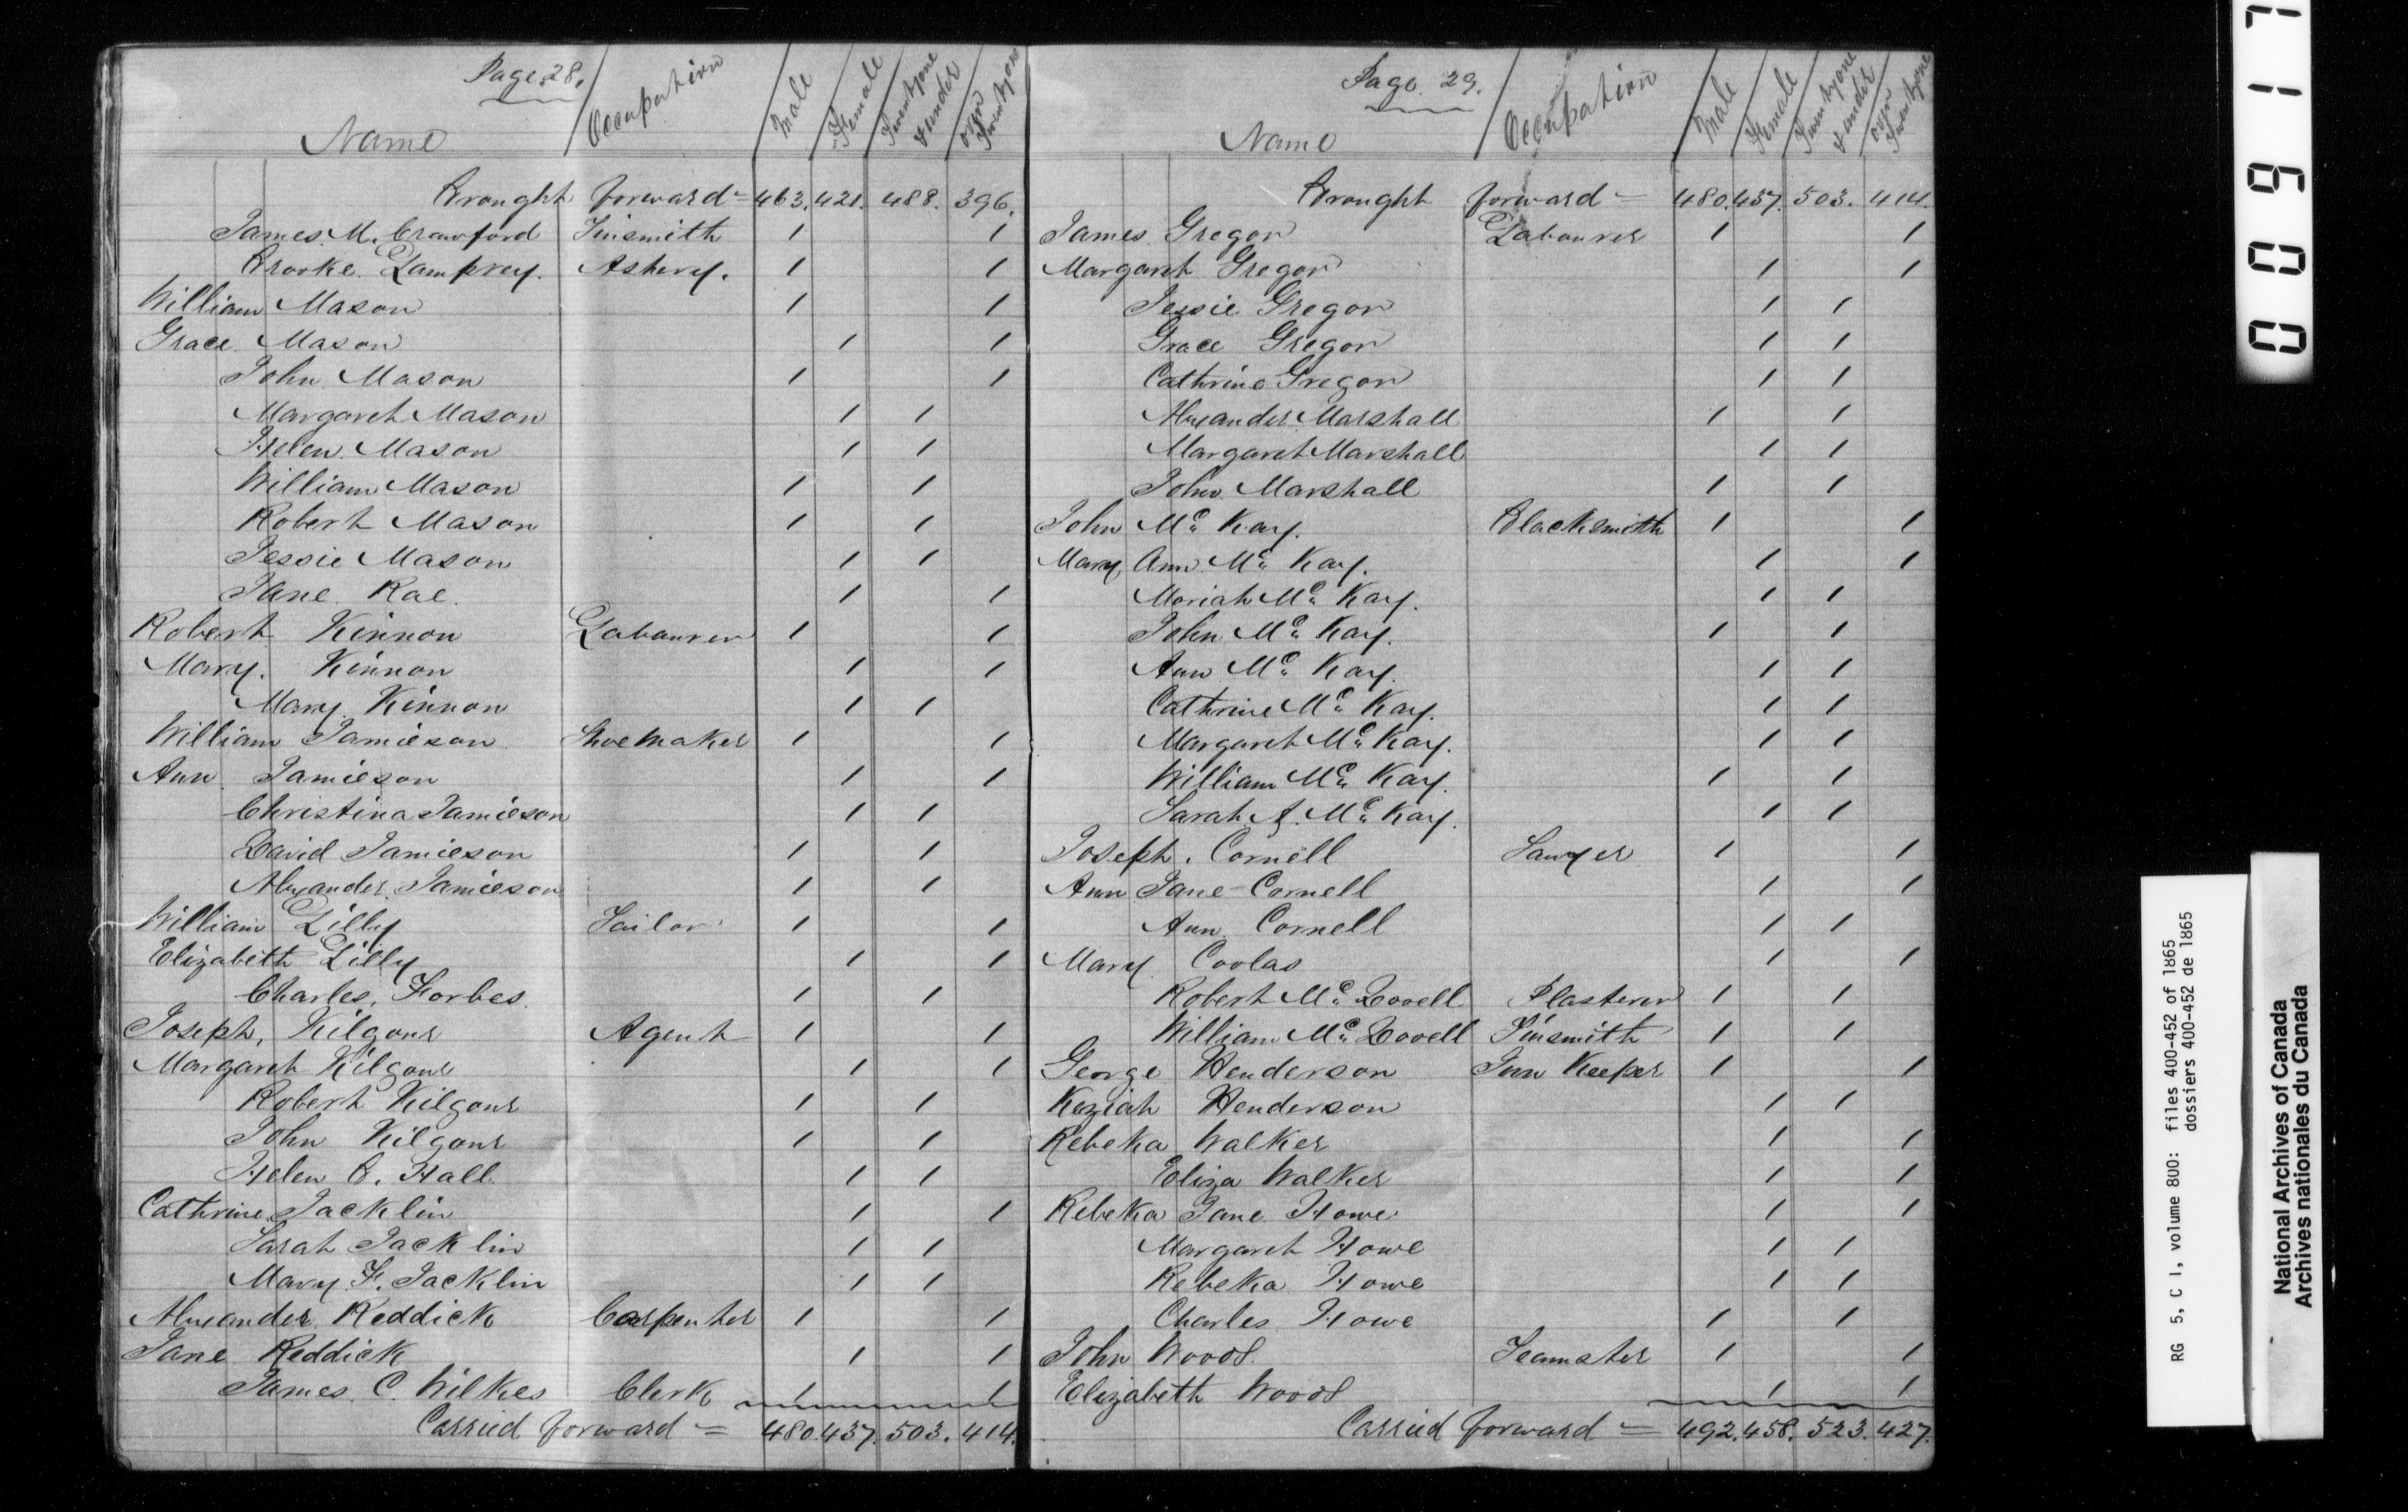 Page 28.
Name Occupation Male Female Twentyone & under over Twentyone
Brought forward = 463. 421. 488. 396.
James M. Crawford Tinsmith 1 1
Brooke Lamprey. Ashery. 1 1
William Mason 1 1
Grace Mason 1 1
John Mason 1 1
Margaret Mason 1 1
Helen Mason 1 1
William Mason 1 1
Robert Mason 1 1
Jessie Mason 1 1
Jane Rae 1 1
Robert Kinnon Labourer 1 1
Mary. Kinnon 1 1
Mary Kinnon 1 1
William Jamieson Shoemaker 1 1
Ann Jamieson 1 1
Christina Jamieson 1 1
David Jamieson 1 1
Alexander Jamieson 1 1
William Lilly Tailor 1 1
Elizabeth Lilly 1 1
Charles, Forbes. 1 1
Joseph, Kilgour Agent 1 1
Margaret Kilgour 1 1
Robert Kilgour 1 1
John Kilgour 1 1
Helen C. Hall 1 1
Cathrine Jacklin 1 1
Sarah Jacklin 1 1
Mary F. Jacklin 1 1
Alexander Reddick Carpenter 1 1
Jane Reddick 1 1
James C. Wilkes Clerk 1 1
Carried forward = 480. 437. 503. 414.
Page 29.
Name Occupation Male Female Twentyone & under over Twentyone
Brought forward = 480. 437. 503. 414.
James Gregor Labourer 1 1
Margaret Gregor 1 1
Jessie Gregor 1 1
Grace Gregor 1 1
Cathrine Gregor 1 1
Alexander Marshall 1 1
Margaret Marshall 1 1
John Marshall 1 1
John Mc Kay. Blacksmith 1 1
Mary Ann Mc Kay. 1 1
Moriah Mc Kay. 1 1
John Mc Kay. 1 1
Ann Mc Kay. 1 1
Cathrine Mc Kay. 1 1
Margaret Mc Kay. 1 1
William Mc Kay. 1 1
Sarah A. Mc Kay. 1 1
Joseph. Cornell Sawyer 1 1
Ann Jane Cornell 1 1
Ann Cornell 1 1
Mary Coolas 1 1
Robert Mc Dovell Plasterer 1 1
William Mc Dovell Tinsmith 1 1
George Henderson Inn Keeper 1 1
Keziah Henderson 1 1
Rebeka Walker 1 1
Eliza Walker 1 1
Rebeka Jane Howe 1 1
Margaret Howe 1 1
Rebeka Howe 1 1
Charles Howe 1 1
John Wood. Teamster 1 1
Elizabeth Wood 1 1
Carried forward = 492. 458. 523. 427.
RG 5, C 1, volume 800: files 400-452 of 1865
dossiers 400-452 de 1865
National Archives of Canada
Archives nationales du Canada